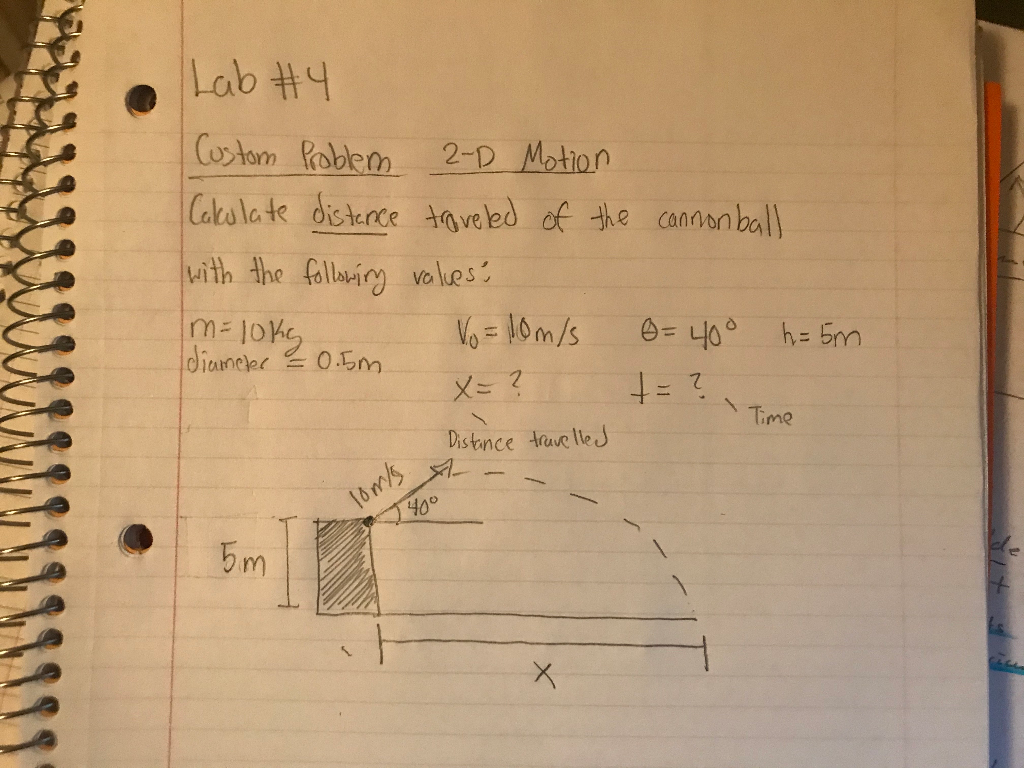 Lab #4
Custom Problem 2-D Motion
Calculate distance traveled of the cannonball
with the following values:
m=10Kg V₀=10m/s θ=40° h=5m
diameter = 0.5m
x=? t=?
Time
Distance travelled
10m/s
40°
5m
X